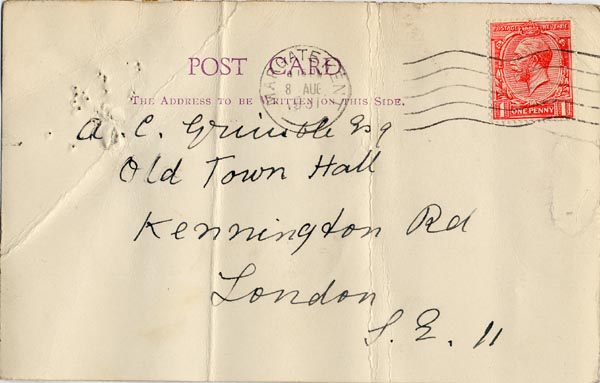 POSTAGE REVENUE
POST CARD
MARGATE KENT
8 AUG
THE ADDRESS TO BE WRITTEN ON THIS SIDE.
1 ONE PENNY 1
A. C. Grimble Esq
Old Town Hall
Kennington Rd
London
S. E. 11